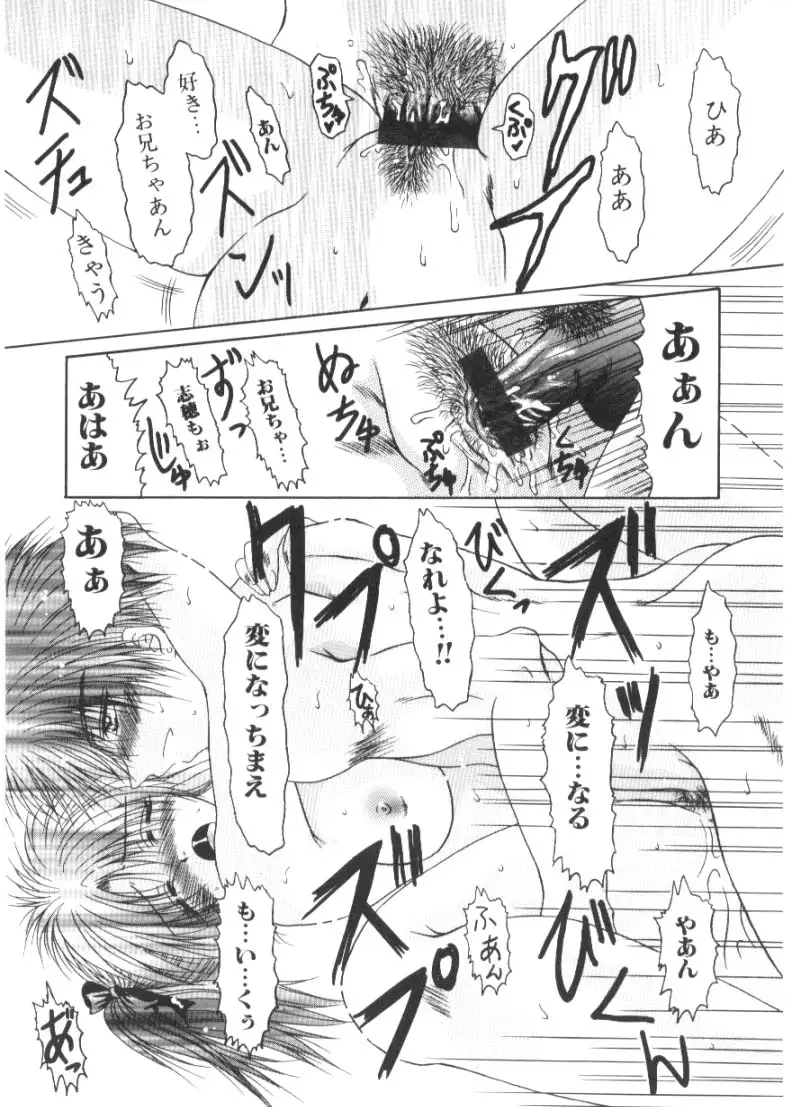 ひあ
ああ
グブ
くぷ♡
ぷちゅ♡
あん
好き…
お兄ちゃあん
ズンッ
ズチュ
きゃう
あぁん
くちゅ
ぷちゅ
ぬちゅ
お兄ちゃ…
志穂もぉ
ずっ
じゅ
あはあ
ズ
びくっ
なれよ…!!
プ
ク
変になっちまえ
あぁ
も…やあ
ズ
変に…なる
ひぁ
やあん
びくん
ふあん
ズプ
も…い…くぅ
あ゛っ